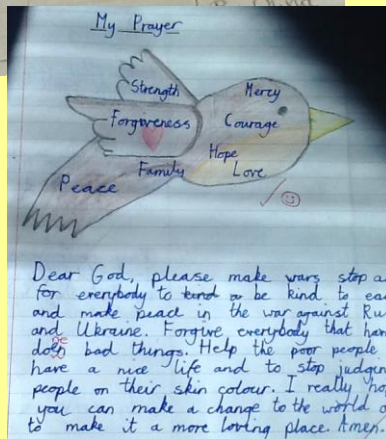 My Prayer
Strength
Mercy
Forgiveness
Courage
Hope
Family
Love
Peace
Dear God, please make wars stop a
for everybody to kind a be kind to ea
and make peace in the war against Ru
and Ukraine. Forgive everybody that hav
done bad things. Help the poor people
have a nice life and to stop judgin
people on their skin colour. I really ho
you can make a change to the world a
to make it a more loving place. Amen.